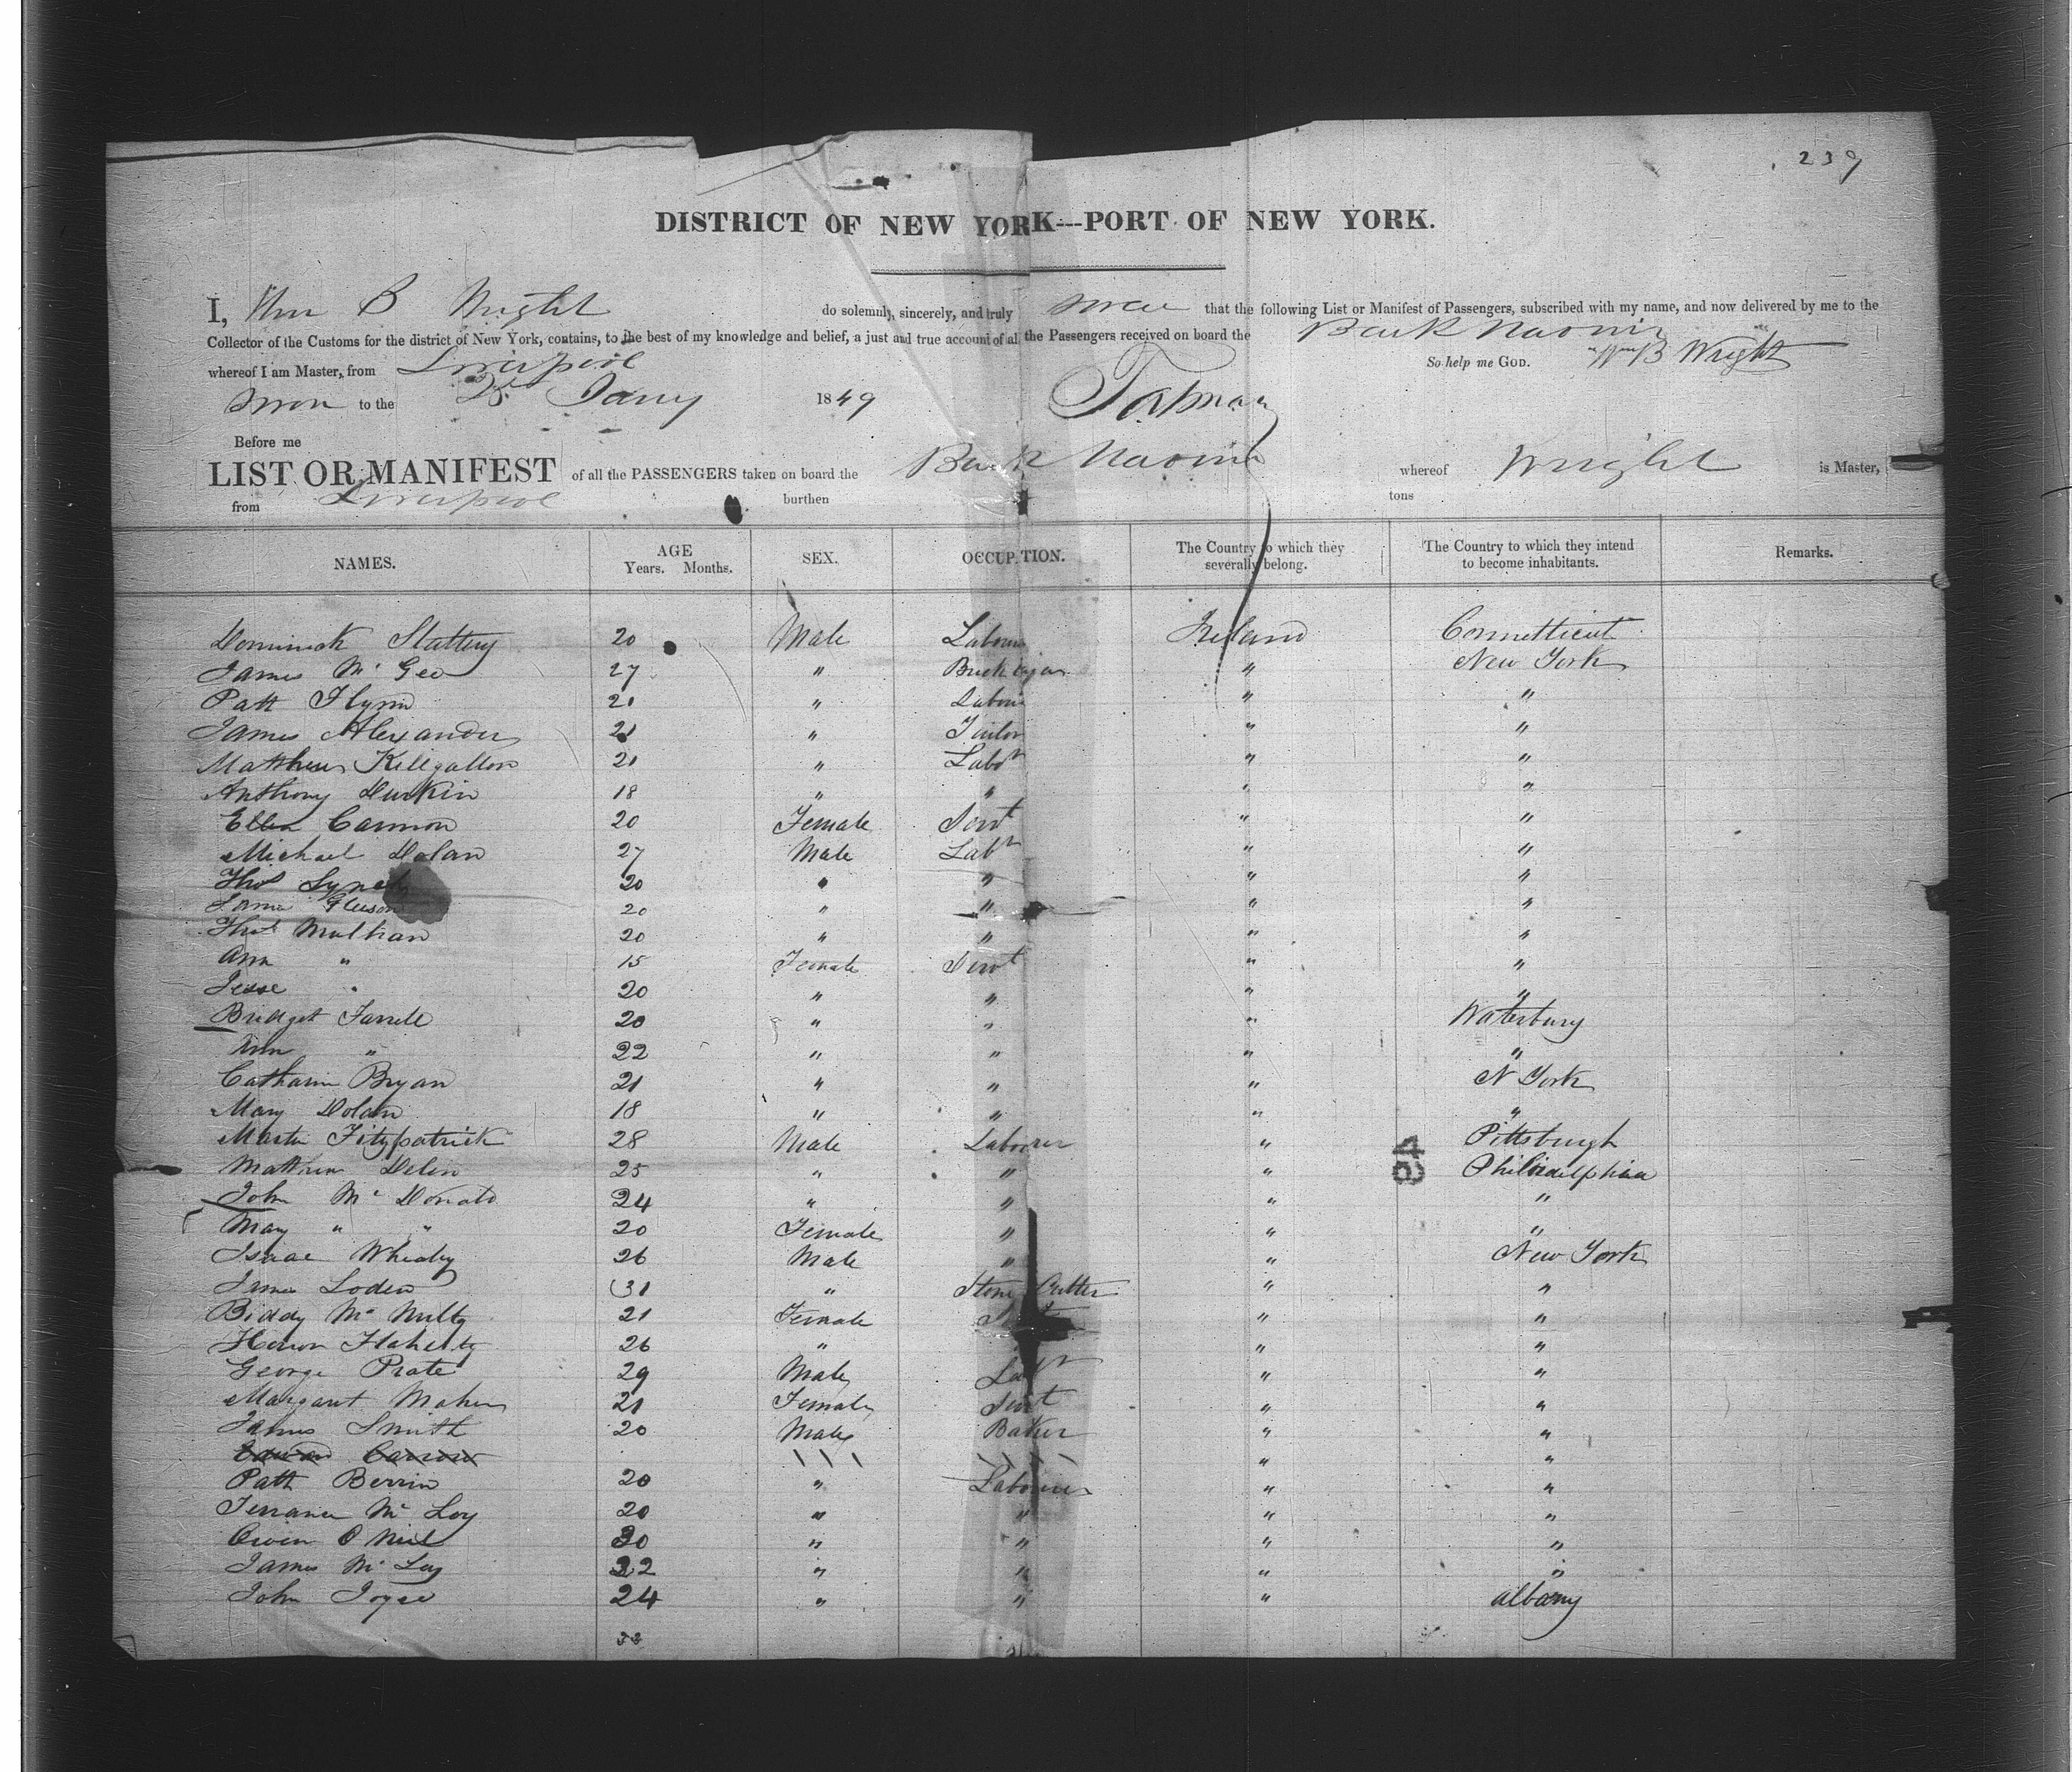 239
DISTRICT OF NEW YORK---PORT OF NEW YORK.
I, Wm B Wright do solemnly, sincerely, and truly swear that the following List or Manifest of Passengers, subscribed with my name, and now delivered by me to the
Collector of the Customs for the district of New York, contains, to the best of my knowledge and belief, a just and true account of all the Passengers received on board the Bark Naomi
whereof I am Master, from Liverpool So help me GOD. Wm B Wright
Sworn to the 25 Jany 1849
Before me
LIST OR MANIFEST of all the PASSENGERS taken on board the Bark Naomi whereof Wright is Master,
from Liverpool burthen tons
NAMES. AGE Years. Months. SEX. OCCUPATION. The Country to which they severally belong. The Country to which they intend to become inhabitants. Remarks.
Dominick Slattery 20 Male Labourer Ireland Connetticut
James Mc Gee 27 " Bricklayer " New York
Patt Flynn 21 " Labour " "
James Alexander 21 " " "
Matthew Killgallon 21 " Labr " "
Anthony Durkin 18 " " " "
Ellen Cannon 20 Female Servt " "
Michael Dolan 27 Male Labr " "
Thos Lynch 20 " " " "
James Gleeson 20 " " " "
Thos Mulhan 20 " " " "
Ann " 15 Female Servt " "
Jesse " 20 " " " "
Bridget Farrell 20 " " " Waterbury
Ann " 22 " " " "
Catharin Bryan 21 " " " N York
Mary Dolan 18 " " " "
Martin Fitzpatrick 28 Male Labourer " Pittsburgh
Matthew 25 " " " Philadelphia
John Mc Donald 24 " " " "
Mary " " 20 Female " " "
Isaac Whealy 26 Male " " New York
James Loden 31 " Stone Cutter " "
Biddy Mc Nulty 21 Female " "
Honor Flaherty 26 " " "
George Prate 29 Male Labr " "
Margaret Maher 21 Female Servt " "
James Smith 20 Male Baker " "
" "
Patt Berrin 20 " Labourer " "
Terrance Mc Loy 20 " " " "
Owen O Neil 30 " " " "
James Mc Loy 22 " " " "
John Joyce 24 " " " Albany
33
94